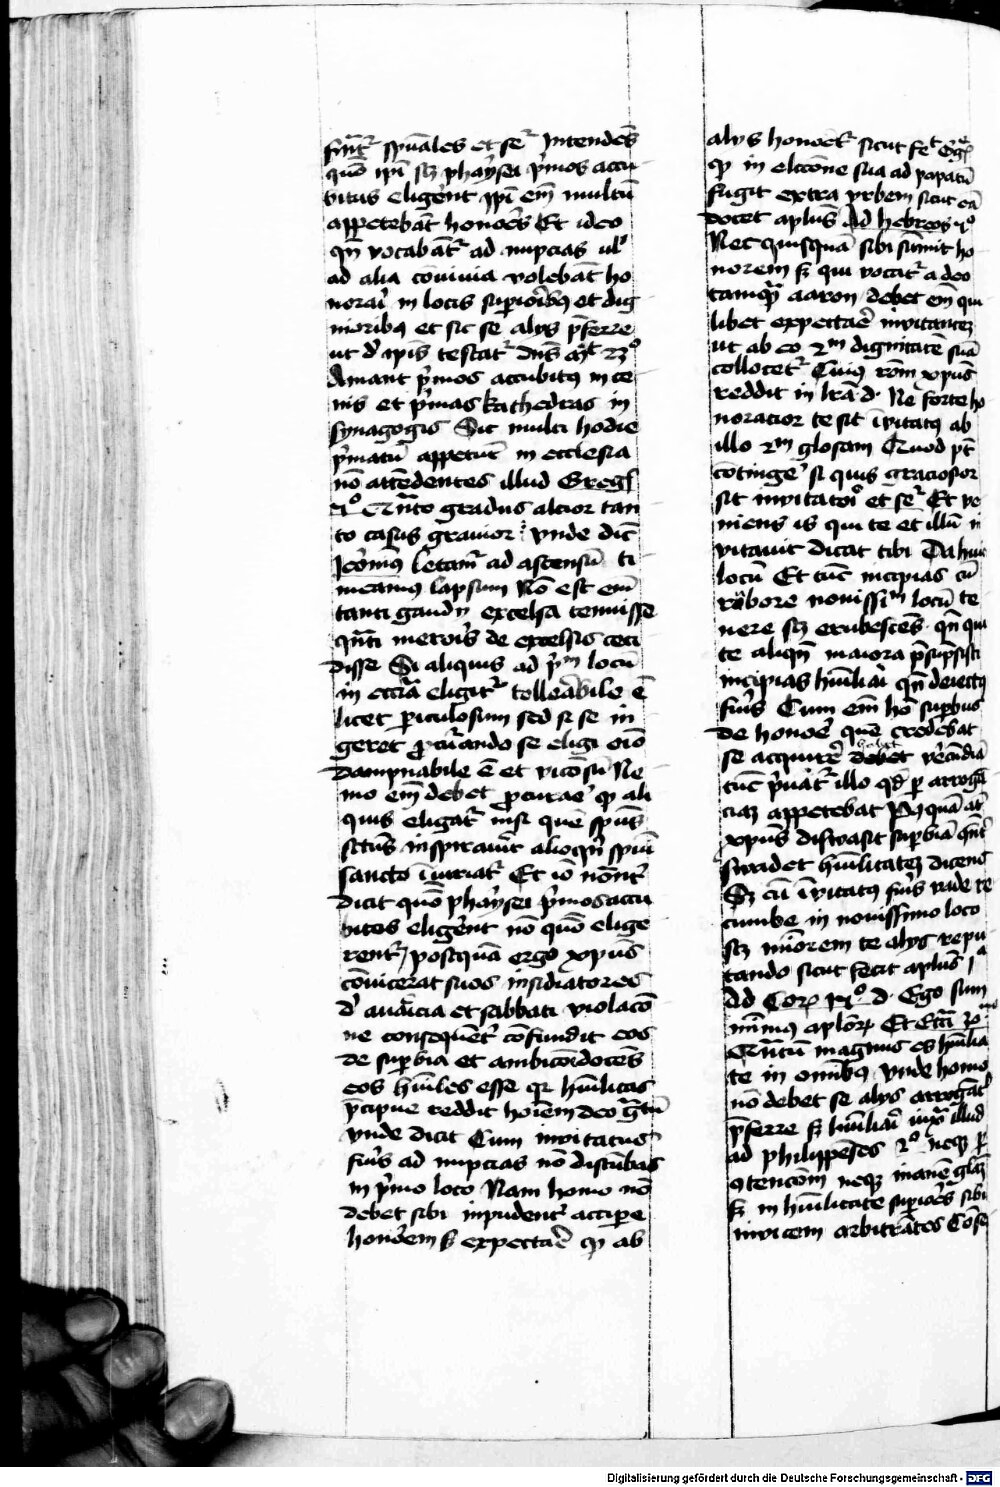 spūales et seʳ Intendēs
quō ipī scz phaẏsei pͥmos accu
bitus eligerēt ipī em̄ multū
appetebāt honoēs Et ideo
qn̄ vocabātʳ ad nupcias ul̓
ad alia cōuiuia volebāt ho
norari in locis supioribꝯ et dig
nioribꝯ et sic se alijs p̄ferre
ut d̓ ipīs testatʳ dn̄s
Amant pͥmos accubitꝯ in ce
nis et pͥmas kathedras in
synagogis Sic multi hodie
pͥmatū appetūt in ecclesia
nō attēdentes illud Gregͥ
Qn̄to gradus alcior tan
to casus grauior vnde dic̄
Jeromꝯ letamʳ ad ascensū ti
meamꝯ lapsum Nō est em̄
tanti gaudij excelsa tenuisse
qn̄ti meroris de excelsis ceci
disse Si aliquis ad pͥm locū
in eccīa eligitʳ tollerabile ē
licet piculosum sed si se in
geret ꝓcurando se eligi oīo
dampnabile ē et viciosū Ne
mo em̄ debet ꝓcurare qꝫ ali
quis eligatʳ nisi quē spūs
sctūs inspirauit alioqn̄ spūi
sancto īiuriatʳ Et iō
dicit quō phaẏsei pͥmos accu
bitos eligerēt nō quō elige
rentʳ postquā ergo xpūs
cōuicerat suos insidiatores
d̓ auaricia et sabbati violacō
ne consequēt̓ cōfundit eos
de supbia et ambicōe docēs
eos hūiles esse qꝛ hūilitas
p̄cipue reddit hoīem deo gͣtū
vnde dicit Cum inuitatus
fūis ad nupcias nō discūbas
in pͥmo loco Nam homo nō
debet sibi inpudenter accipe
honorem sꝫ expectare qꝫ ab
alijs honoretʳ sicut fēt Gregͥ
qꝫ in elccōne sua ad papatū
fugit extra vrbem sicut eā
docet aplūs Ad hebreos vͦ
Nec quisquā sibi sumit ho
norem sꝫ qui vocatʳ a deo
tamqͣ aaron debet em̄ qui
libet expectare inuitantez
ut ab eo 2m dignitatē suā
collocetʳ Cuiꝯ rōm xpūs
reddit in lrā d. Ne forte ho
noracior te sit īuitatꝯ ab
illo 2m glosam Quod pt̄
cōtinge si quis graciosior
sit inuitatori et seʳ Et ve
niens is qui te et illū in
vitauit dicat tibi Da huic
locū Et tūc incipias cū
rubore nouissim locū te
nere scz erubescēs qn̄ qui
te aliqn̄ maiora psūpsisti
incipias hūiliari qn̄ deiectꝯ
fūis Cum em̄ hō supbus
de honoē quē credebat
se acquirē debet vēcūdiā
tūc pͥuatʳ illo qd̄ p arrogā
ciaz appetebat Pꝯquā at̄
xpūs dissuasit supbiā
suadet hūilitatez dicens
Sꝫ cū īuitatꝯ fūis vade re
cumbe in nouissimo loco
scz miorem te alijs repu
tando sicut fecit aplūs jͣ
Ad Coꝝ d. Ego sum
minimꝯ aploꝝ Et Ecci
Qn̄tum magnus es hūilia
te in omībꝯ vnde homo
nō debet se alijs arrogāt̓
p̄ferre sꝫ hūiliari iuxͣ illud
ad philippēses 2ͦ neqꝫ p
ꝯtencōm neqꝫ inanē glāꝫ
sꝫ in hūilitate supiores sibi
inuicem arbitrātes